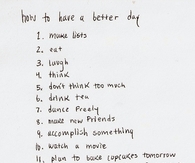 how to have a better day
1. make lists
2. eat
3. laugh
4. think
5. don't think too much
6. drink tea
7. dance freely
8. make new friends
9. accomplish something
10. watch a movie
11. plan to bake cupcakes tomorrow